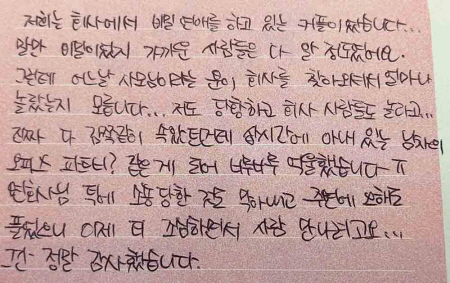 저희는 회사에서 비밀 연애를 하고 있는 커플이었습니다...
말만 비밀이었지 가까운 사람들은 다 알 정도였어요.
그런데 어느날 사모님이라는 분이 회사를 찾아오셔서 얼마나
놀랐는지 모릅니다... 저도 당황하고 회사 사람들도 놀라고..
진짜 다 감쪽같이 속았던건데 삽시간에 아내 있는 남자의
오피스 파트너? 같은 게 되어 너무너무 억울했습니다 ㅠ
변호사님 덕에 소송 당한 것도 막아내고 주변에 오해도
풀었으니 이제 더 조심하면서 사람 만나려고요...
정말 감사했습니다.